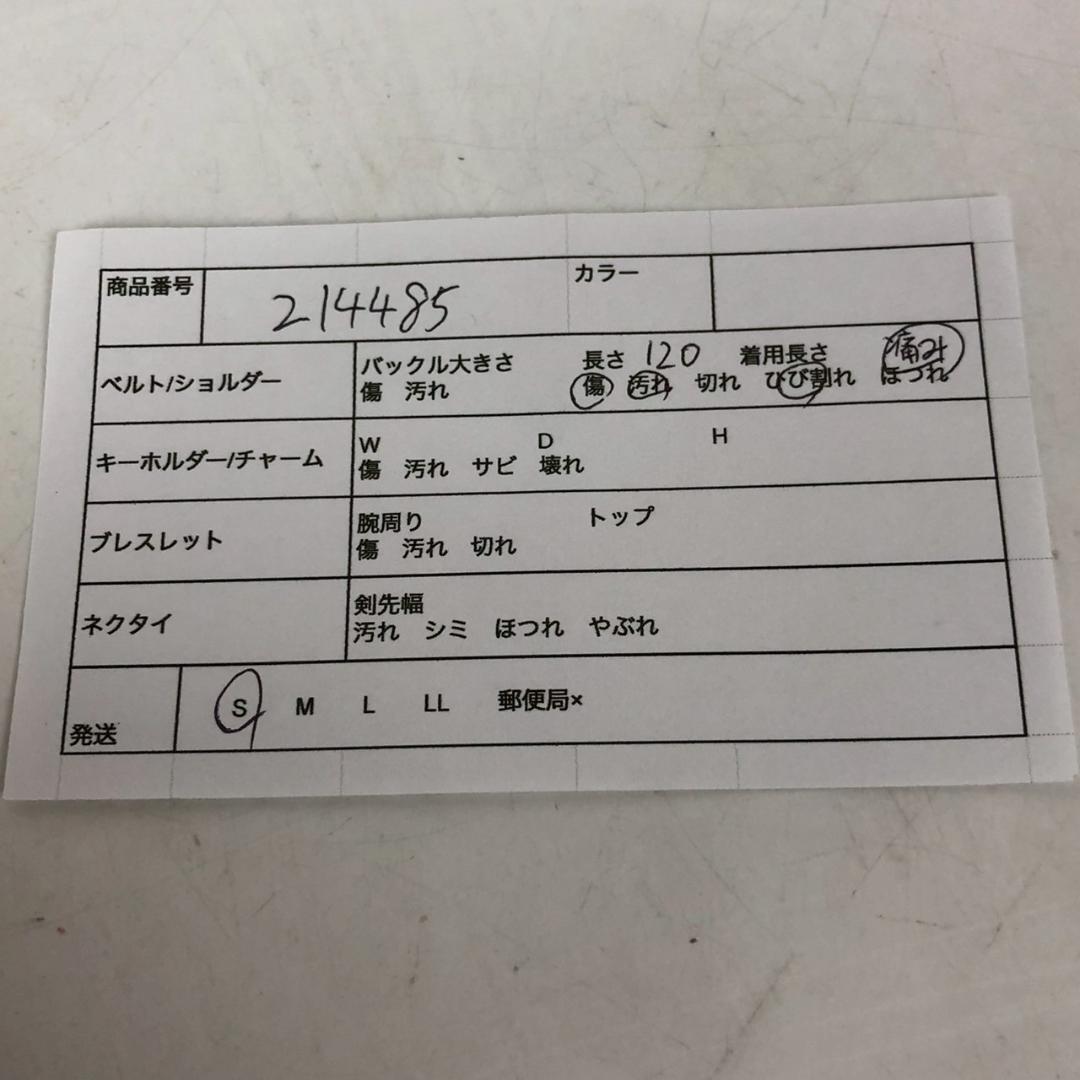 商品番号 214485 カラー
ベルト/ショルダー バックル大きさ 長さ 120 着用長さ 痛み
傷 汚れ 傷 汚れ 切れ ひび割れ ほつれ
キーホルダー/チャーム W D H
傷 汚れ サビ 壊れ
ブレスレット 腕周り トップ
傷 汚れ 切れ
ネクタイ 剣先幅
汚れ シミ ほつれ やぶれ
発送 S M L LL 郵便局×